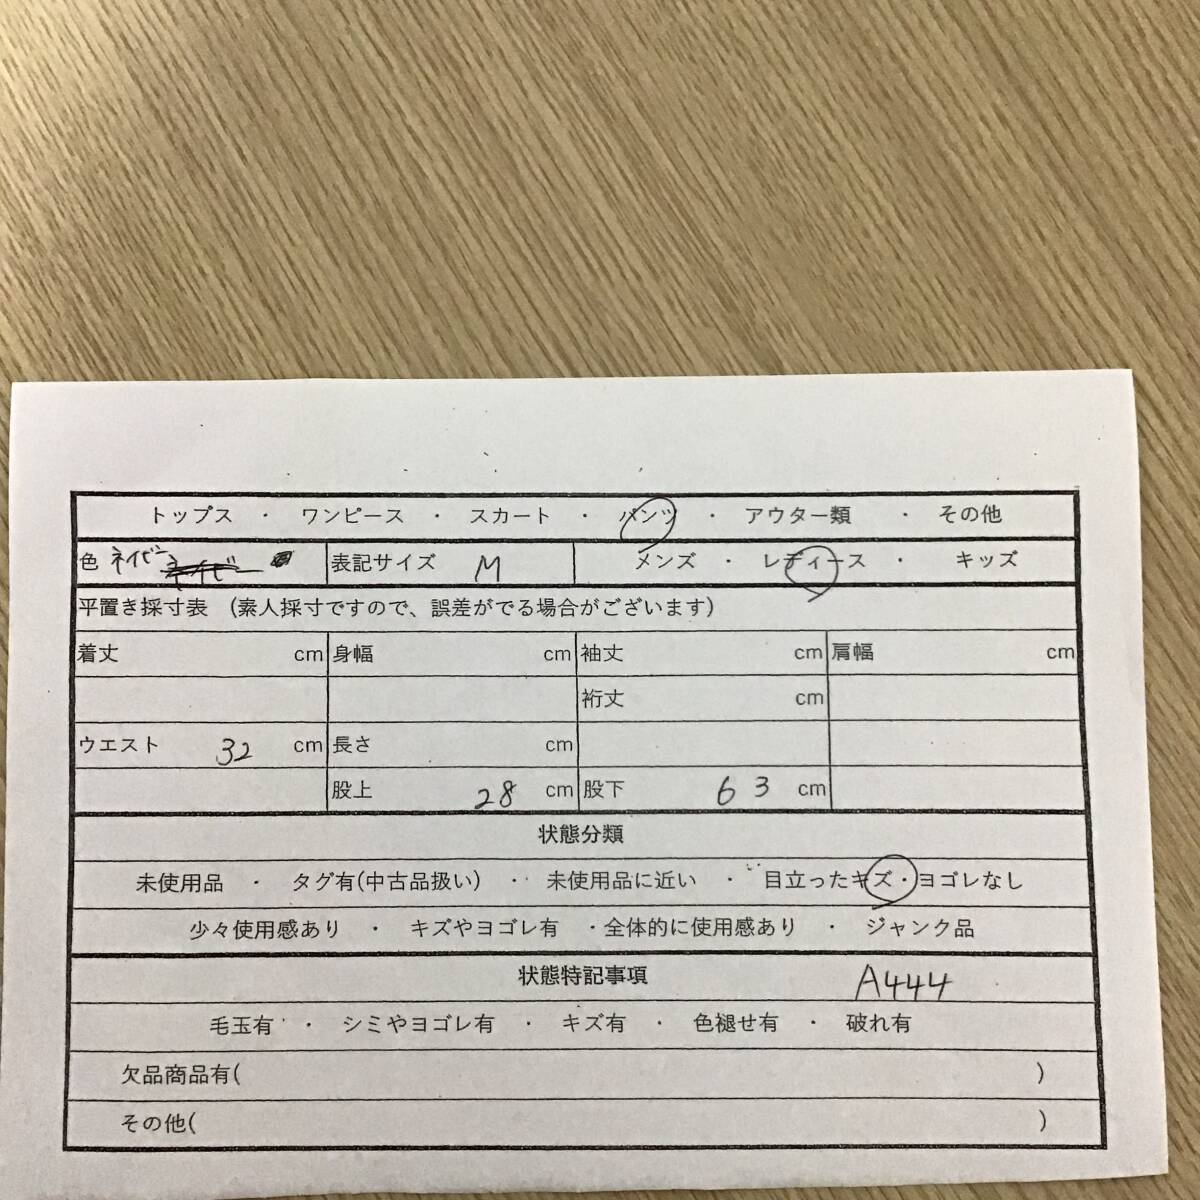 トップス ・ ワンピース ・ スカート ・ パンツ ・ アウター類 ・ その他
色 ネイビー 表記サイズ M メンズ ・ レディース ・ キッズ
平置き採寸表 (素人採寸ですので、誤差がでる場合がございます)
着丈 cm 身幅 cm 袖丈 cm 肩幅 cm
裄丈 cm
ウエスト 32 cm 長さ cm
股上 28 cm 股下 63 cm
状態分類
未使用品 ・ タグ有(中古品扱い) ・ 未使用品に近い ・ 目立ったキズ・ヨゴレなし
少々使用感あり ・ キズやヨゴレ有 ・全体的に使用感あり ・ ジャンク品
状態特記事項 A444
毛玉有 ・ シミやヨゴレ有 ・ キズ有 ・ 色褪せ有 ・ 破れ有
欠品商品有( )
その他( )